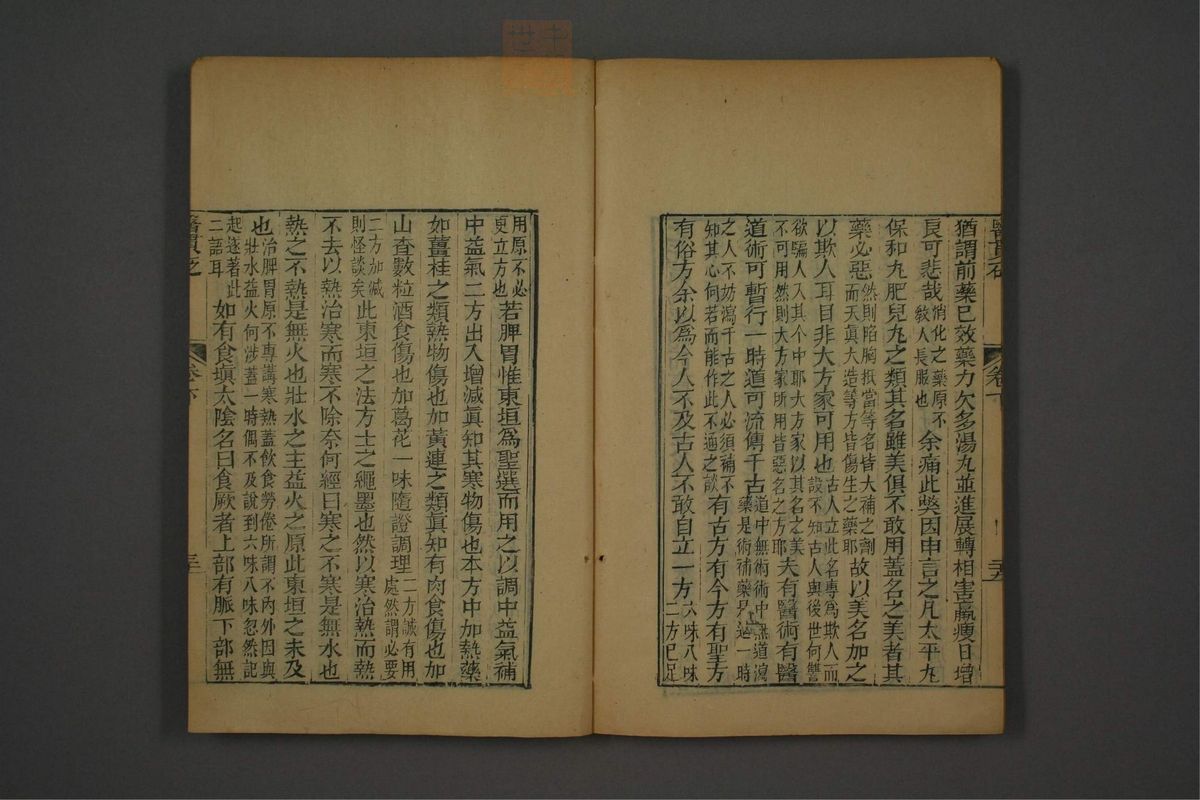 醫貫砭 卷下
猶謂前藥已效藥力欠多湯丸並進展轉相害羸瘦日增
良可悲哉消化之藥原不敎人長服也余痛此弊因申言之凡太平丸
保和丸肥兒丸之類其名雖美俱不敢用蓋名之美者其
藥必惡然則陷胸抵當等名皆大補之劑而天眞大造等方皆傷生之藥耶故以美名加之
以欺人耳目非大方家可用也古人立此名專爲欺人而設不知古人與後世何讐
欲騙人入其个中耶大方家以其名之美不可用然則大方家所用皆惡名之方耶夫有醫術有醫
道術可暫行一時道可流傳千古道中無術術中無道瀉藥是術補藥是道一時
之人不妨瀉千古之人必須補不知其心何若而能作此不通之談有古方有今方有聖方
有俗方余以爲今人不及古人不敢自立一方六味八味二方已足
用原不必更立方也若脾胃惟東垣爲聖選而用之以調中益氣補
中益氣二方出入增減眞知其寒物傷也本方中加熱藥
如薑桂之類熱物傷也加黃連之類眞知有肉食傷也加
山查數粒酒食傷也加葛花一味隨證調理二方誠有用處然謂必要
二方加減則怪談矣此東垣之法方士之繩墨也然以寒治熱而熱
不去以熱治寒而寒不除奈何經曰寒之不寒是無水也
熱之不熱是無火也壯水之主益火之原此東垣之未及
也治脾胃原不專講寒熱蓋飲食勞倦所謂不內外因與壯水益火何涉蓋一時偶不及說到六味八味忽然記
起遂著此二語耳如有食塡太陰名曰食厥者上部有脈下部無
醫貫砭 卷下